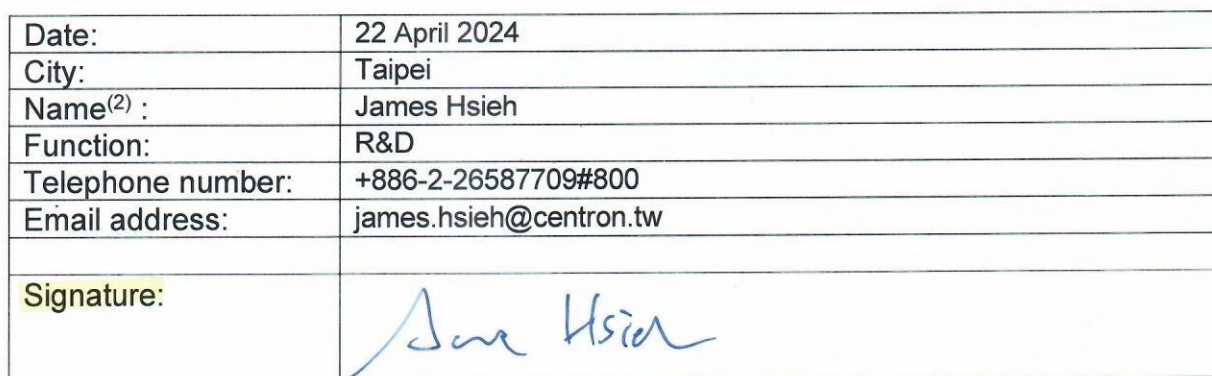 Date: 22 April 2024
City: Taipei
Name(2) : James Hsieh
Function: R&D
Telephone number: +886-2-26587709#800
Email address: james.hsieh@centron.tw
Signature: Hsieh